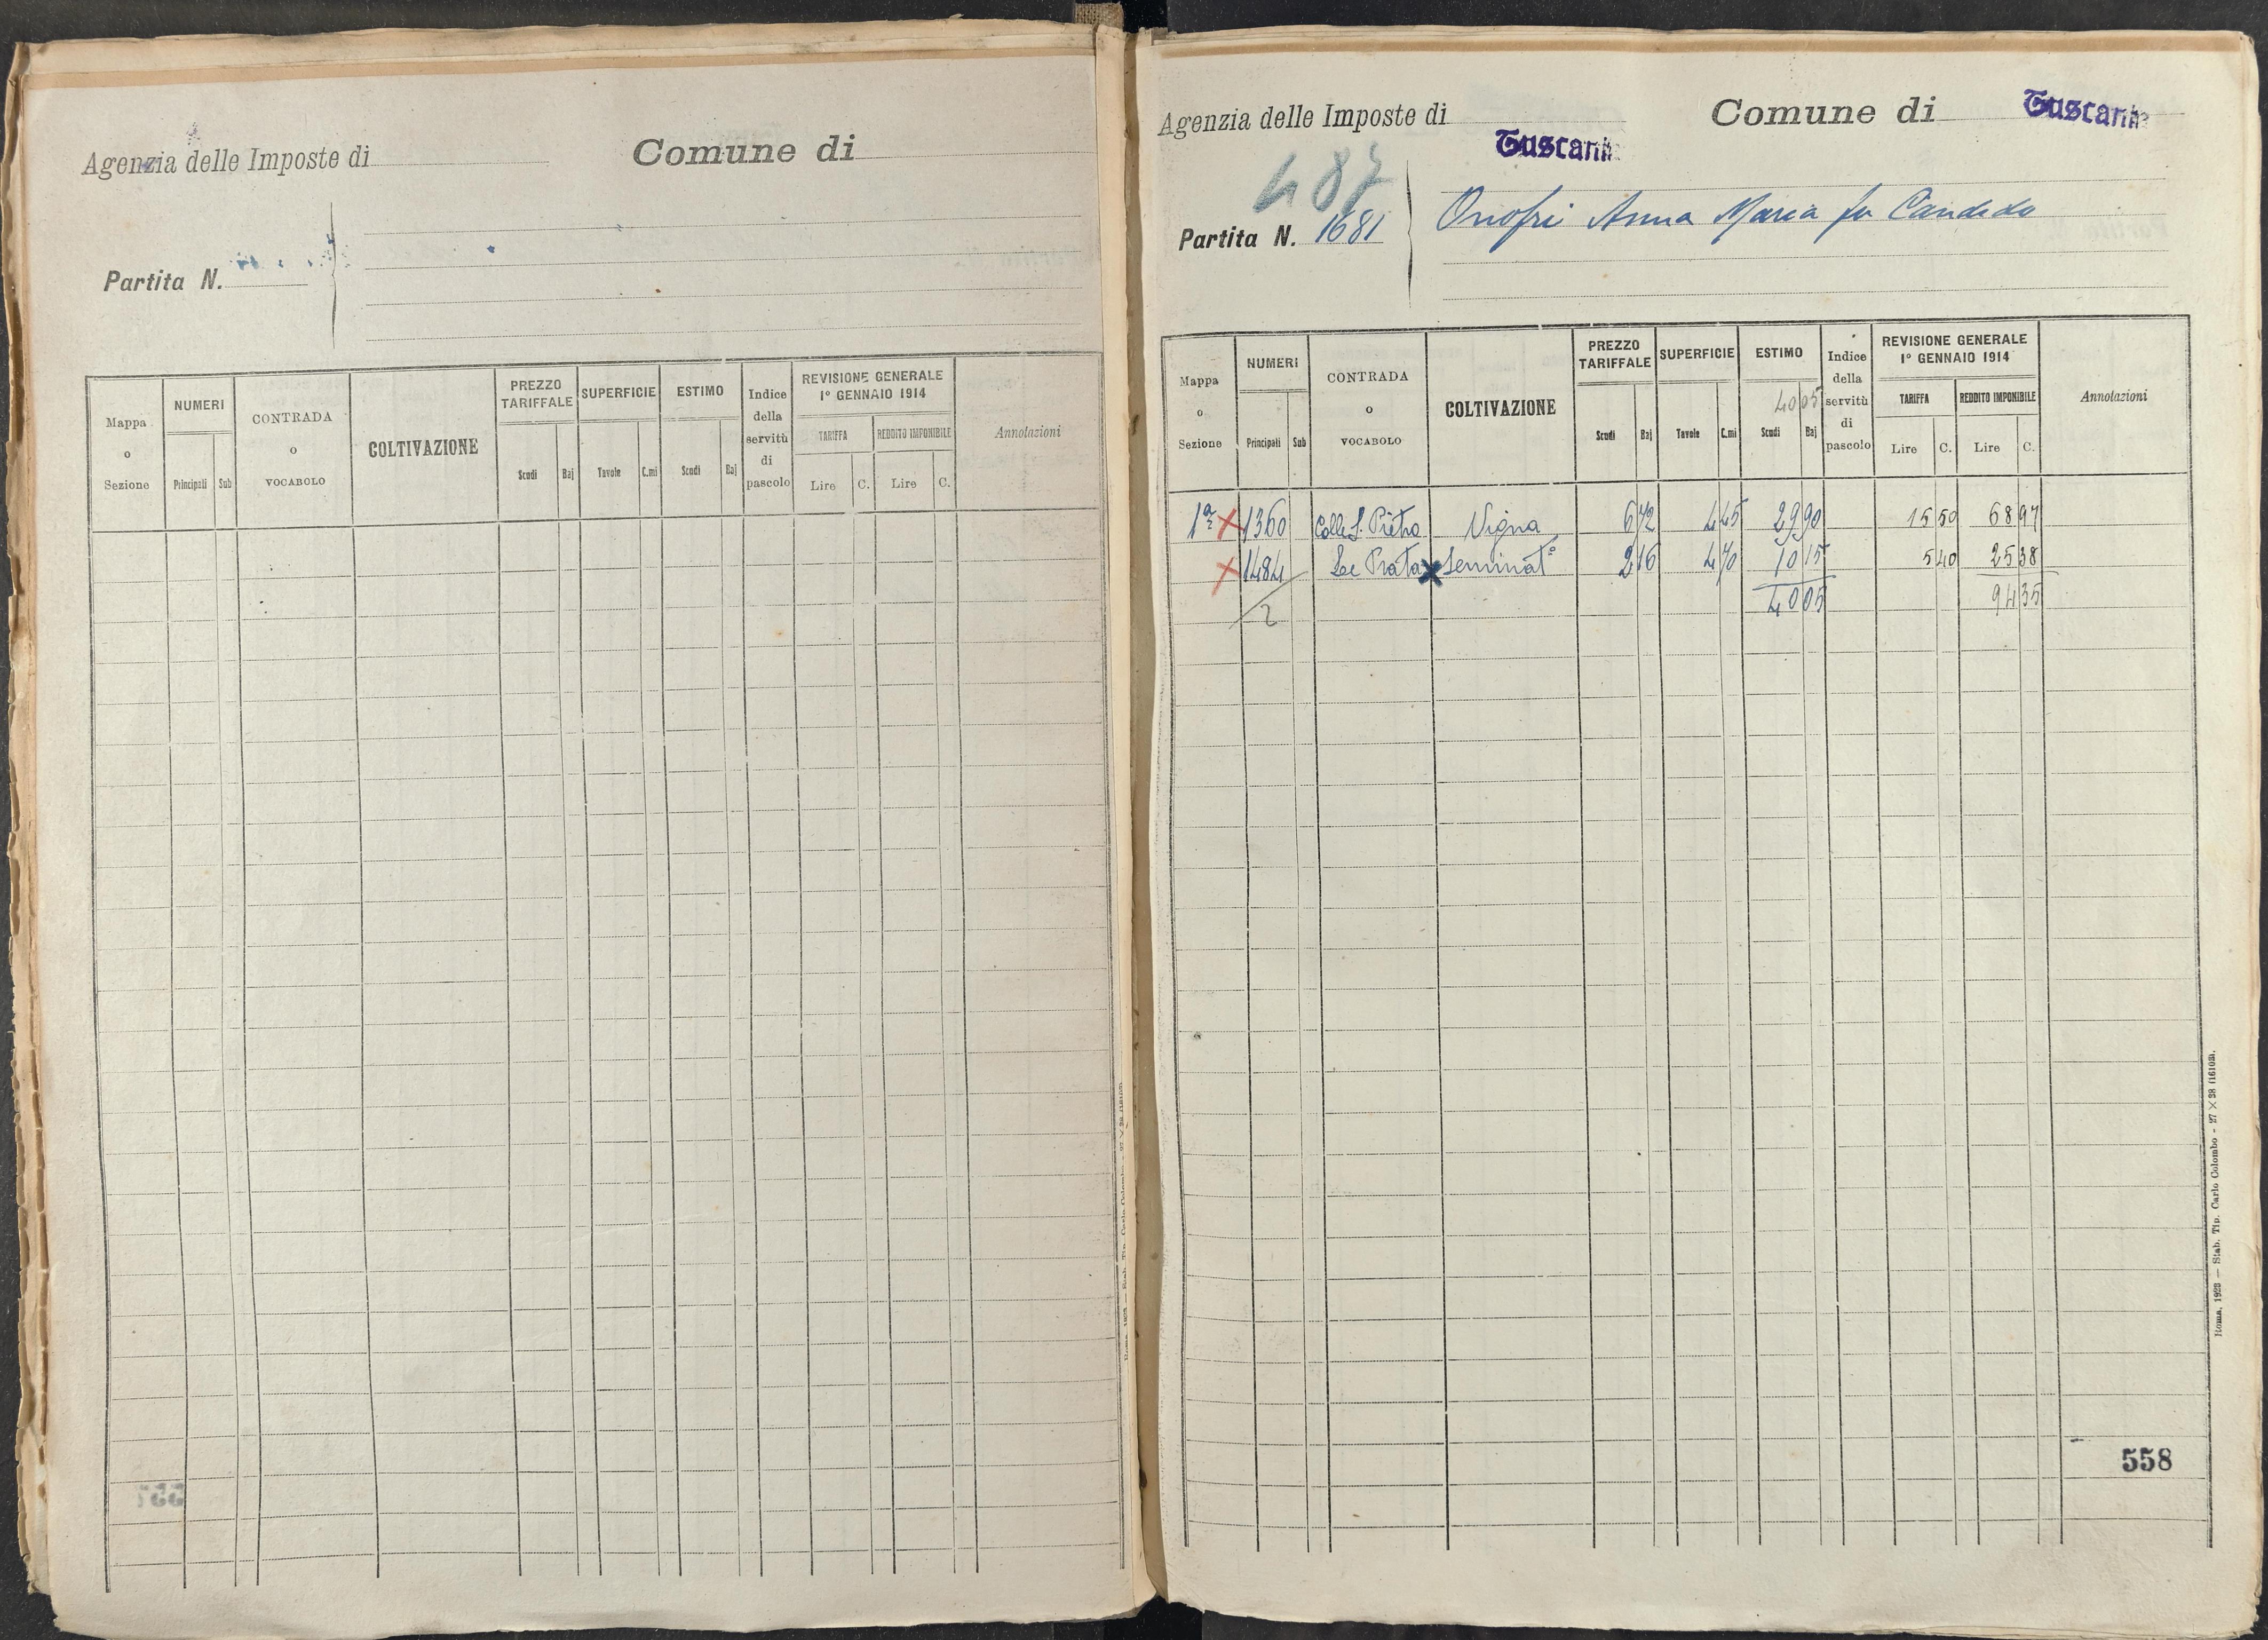 Agenzia delle Imposte di
Comune di
Partita N.
Mappa o Sezione
NUMERI
Principali Sub
CONTRADA o VOCABOLO
COLTIVAZIONE
PREZZO TARIFFALE
Scudi Baj
SUPERFICIE
Tavole C.mi
ESTIMO
Scudi Baj
Indice della servitù di pascolo
REVISIONE GENERALE
1° GENNAIO 1914
TARIFFA REDDITO IMPONIBILE
Lire C. Lire C.
Annotazioni
Agenzia delle Imposte di Tuscania
Comune di Tuscania
487
Partita N. 1681
Onofri Anna Maria fu Candido
Mappa o Sezione
NUMERI
Principali Sub
CONTRADA o VOCABOLO
COLTIVAZIONE
PREZZO TARIFFALE
Scudi Baj
SUPERFICIE
Tavole C.mi
ESTIMO
40 05
Scudi Baj
Indice della servitù di pascolo
REVISIONE GENERALE
1° GENNAIO 1914
TARIFFA REDDITO IMPONIBILE
Lire C. Lire C.
Annotazioni
1ª x 1360 Colle S. Pietro Vigna 6 72 4 45 29 90 15 50 68 97
x 1484/2 Le Prata x Seminat° 2 16 4 70 10 15 5 40 25 38
40 05 94 35
Roma, 1923 — Stab. Tip. Carlo Colombo - 27 × 38 (1610m.
558